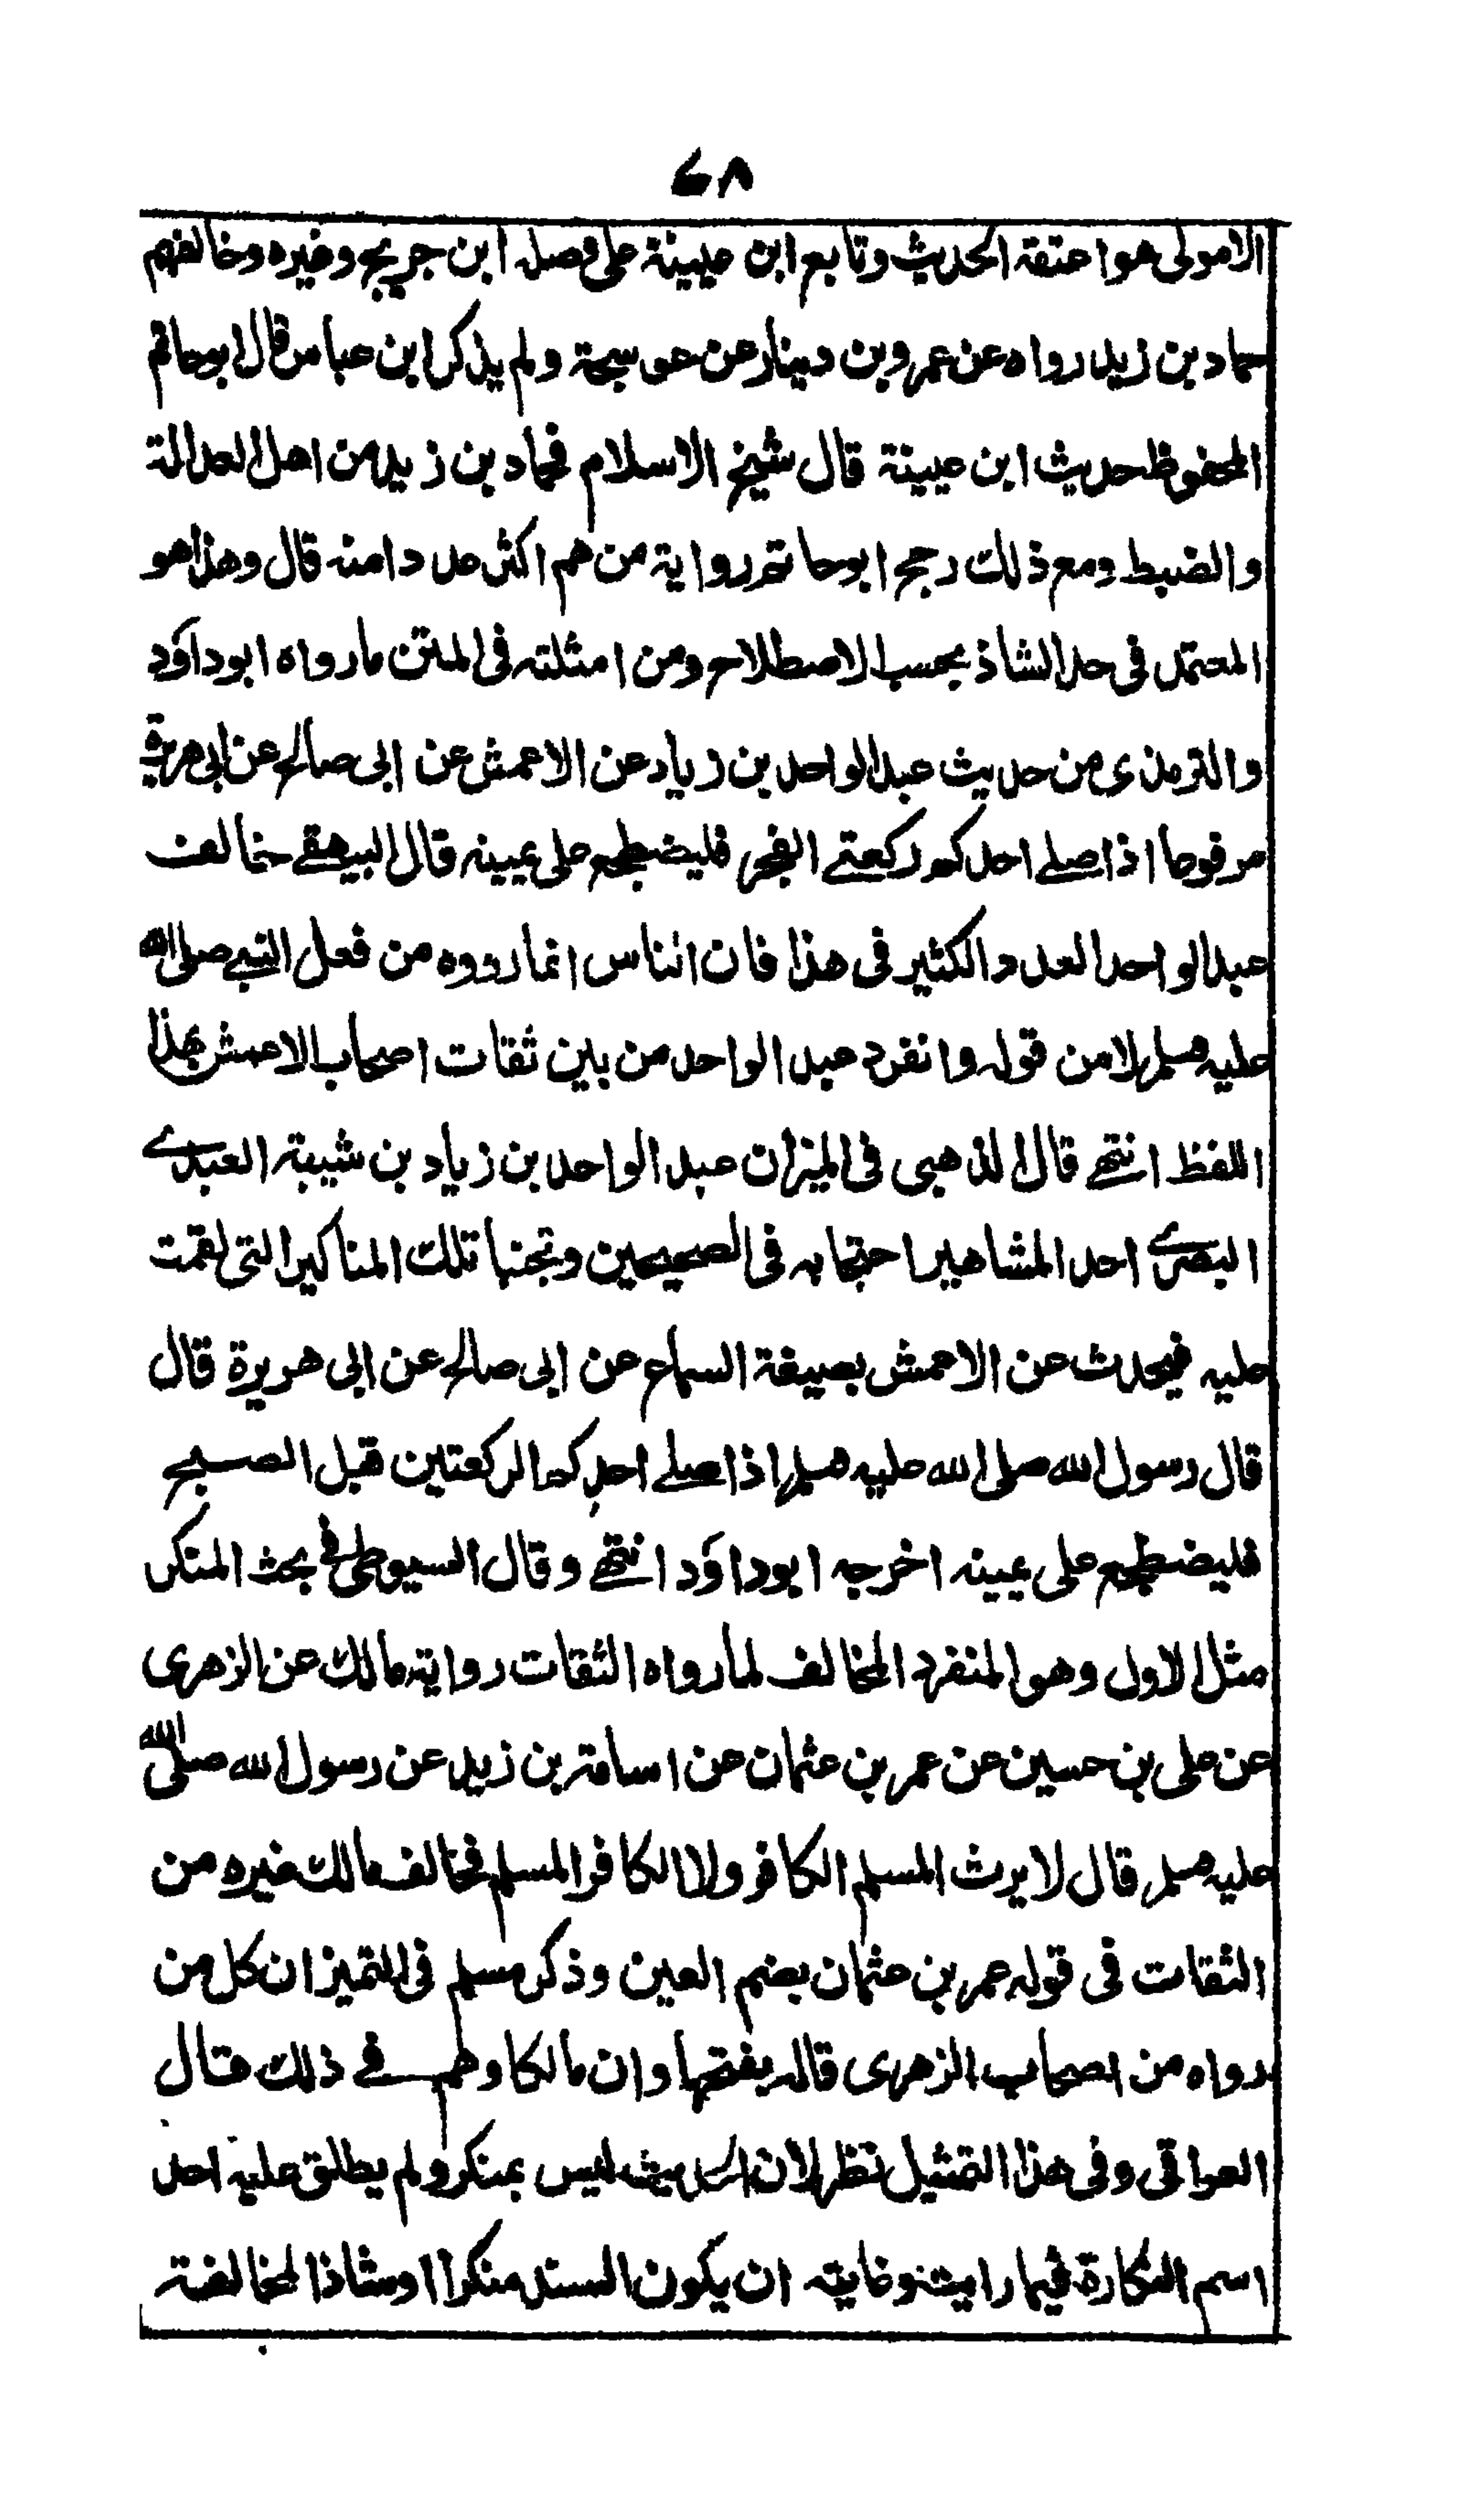 ٤٨
الا مولى هو اعتقه الحديث وتابع ابن عيينة على وصله ابن جريج وغيره وخالفهم
حماد بن زيد رواه عن عمرو بن دينار عن عوسجة ولم يذكر ابن عباس قال ابوحاتم
المحفوظ حديث ابن عيينة قال شيخ الاسلام فحماد بن زيد من اهل العدالة
والضبط ومع ذلك رجح ابوحاتم رواية من هم اكثر عددا منه قال وهذا هو
المعتمد فى حد الشاذ بحسب الاصطلاح ومن امثلته فى المتن ما رواه ابوداؤد
والترمذى من حديث عبد الواحد بن زياد عن الاعمش عن ابى صالح عن ابى هريرة
مرفوعا اذا صلے احدكم ركعتے الفجر فليضطجع على يمينه قال البيهقے خالف
عبد الواحد العدد الكثير فى هذا فان الناس انما رووه من فعل النبے صلى الله
عليه وسلم لا من قوله وانفرد عبد الواحد من بين ثقات اصحاب الاعمش بهذا
اللفظ انتهے قال الذهبى فى الميزان عبد الواحد بن زياد بن شيبة العبدے
البصرے احد المشاهير احتجا به فى الصحيحين وتجنبا تلك المناكير التى نقمت
عليه فيحدث عن الاعمش بصيغة السماع عن ابى صالح عن ابى هريرة قال
قال رسول الله صلى الله عليه وسلم اذا صلے احدكم الركعتين قبل الصبح
فليضطجع على يمينه اخرجه ابوداؤد انتهے وقال السيوطى فى بحث المنكر
مثل الاول وهو المنفرد المخالف لما رواه الثقات رواية مالك عن الزهرى
عن على بن حسين عن عمر بن عثمان عن اسامة بن زيد عن رسول الله صلى الله
عليه وسلم قال لا يرث المسلم الكافر ولا الكافر المسلم فخالف مالك غيره من
الثقات فى قوله عمر بن عثمان بضم العين وذكر مسلم فى التمييز ان كل من
رواه من اصحاب الزهرى قاله بفتحها وان مالكا وهم فے ذلك قال
العراقى وفى هذا التمثيل نظر لان الحديث ليس بمنكر ولم يطلق عليه احد
اسم النكارة فيما رايت وغايته ان يكون السند منكرا او شاذا لمخالفة